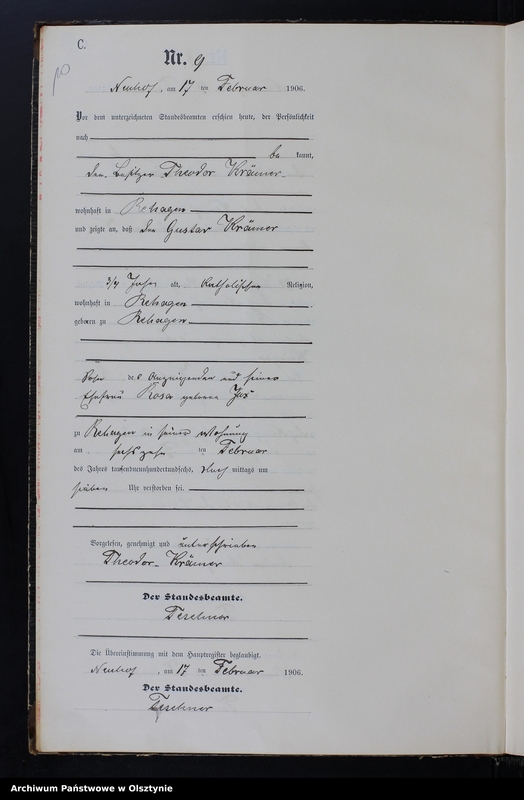 C.
Nr. 9
Neuhof, am 17 ten Februar 1906.
Vor dem unterzeichneten Standesbeamten erschien heute, der Persönlichkeit
nach
be kannt,
der Besitzer Theodor Krämer
wohnhaft in Rehagen
und zeigte an, daß der Gustav Krämer
3/4 Jahr alt, katholischer Religion,
wohnhaft in Rehagen
geboren zu Rehagen
Sohn des Anzeigenden und seiner
Ehefrau Rosa geborene
zu Rehagen in seiner Wohnung
am sechszehn ten Februar
des Jahres tausendneunhundertundsechs, Nach mittags um
sieben Uhr verstorben sei.
Vorgelesen, genehmigt und unterschrieben
Theodor Krämer
Der Standesbeamte.
Teschner
Die Übereinstimmung mit dem Hauptregister beglaubigt.
Neuhof, am 17 ten Februar 1906.
Der Standesbeamte.
Teschner
Archiwum Państwowe w Olsztynie